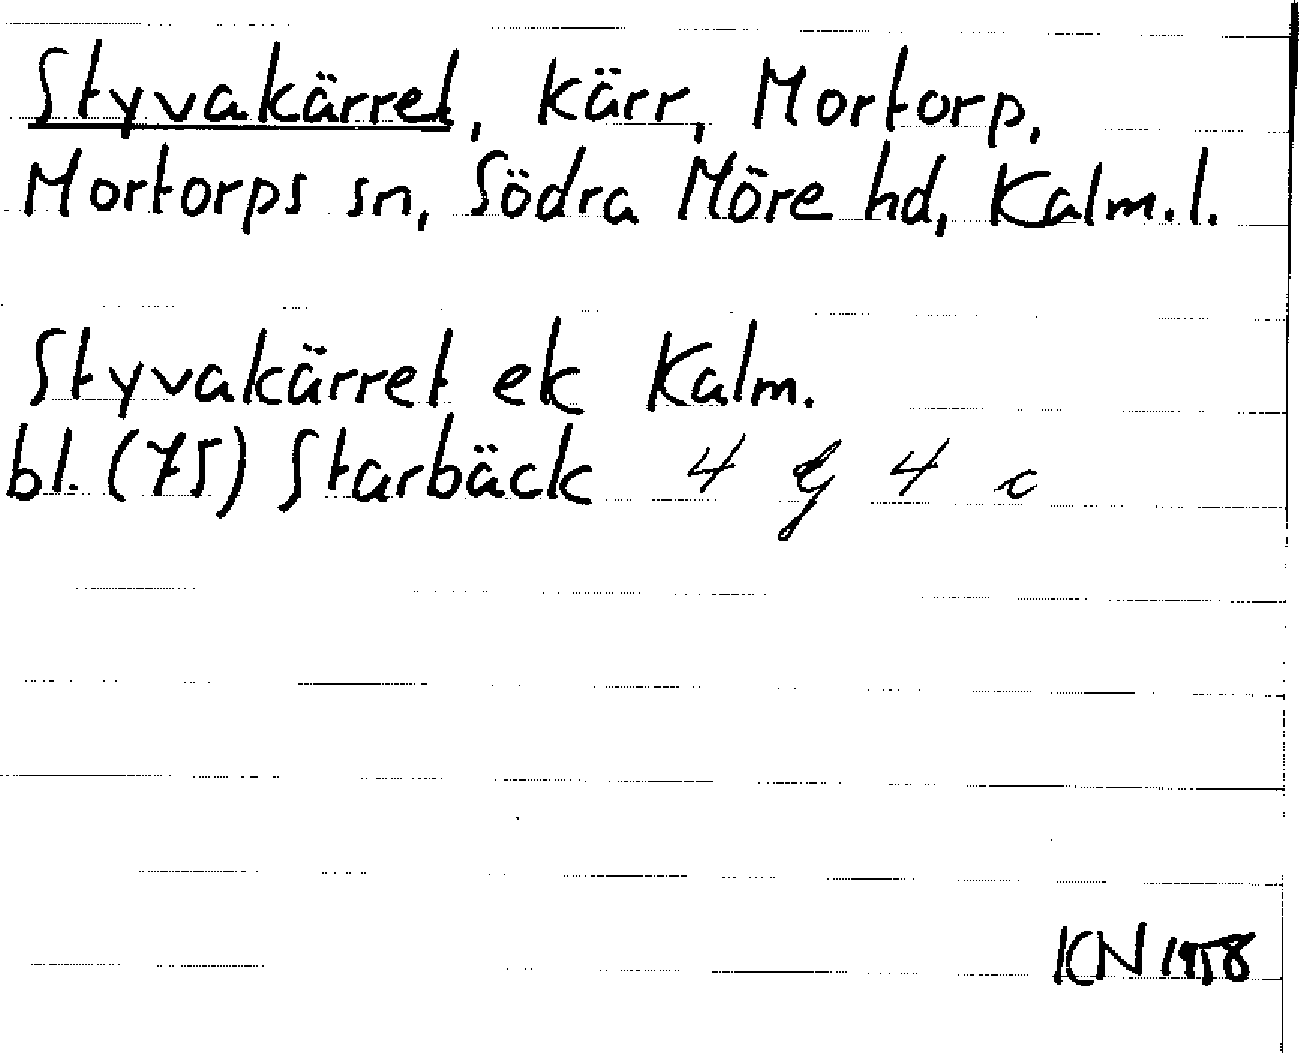 Styvakärret, kärr, Mortorp,
Mortorps sn, Södra Möre hd, Kalm.l.
Styvakärret ek Kalm.
bl. (75) Starbäck 4 G 4 c
KN 1958